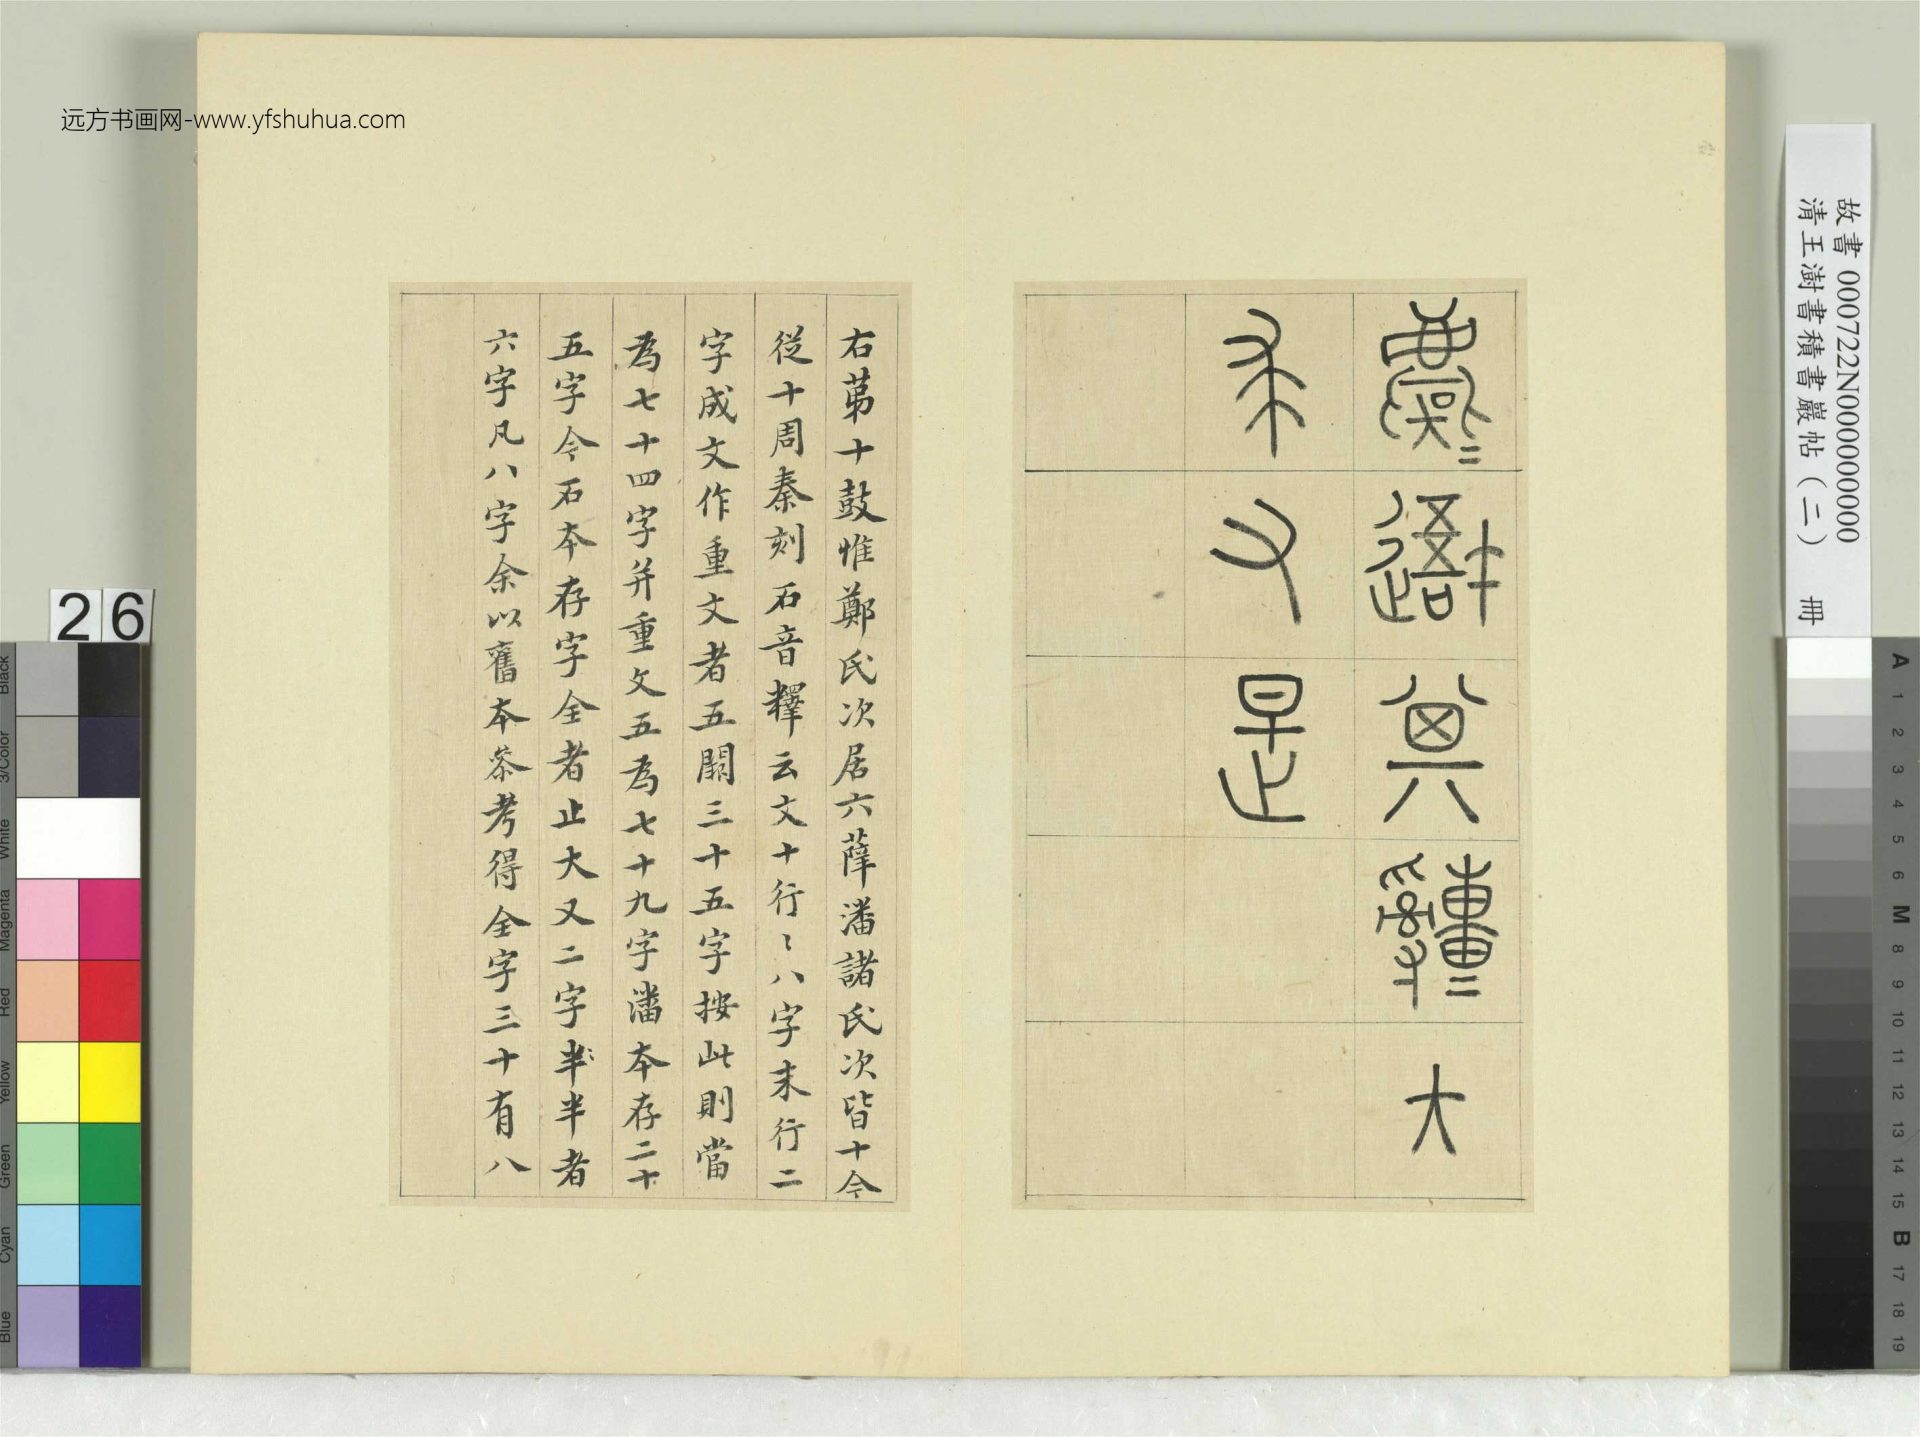 远方书画网-www.yfshuhua.com
故書 000722N000000000
清王澍書積書巖帖（二） 冊
大
又
是
右苐十鼓惟鄭氏次居六薛潘諸氏次皆十今
從十周秦刻石音釋云文十行〻八字末行二
字成文作重文者五闕三十五字按此則當
為七十四字并重文五為七十九字潘本存二十
五字今石本存字全者止大又二字半半者
六字凡八字余以舊本叅考得全字三十有八
26
Black
3/Color
White
Magenta
Red
Yellow
Green
Cyan
Blue
A
1
2
3
4
5
6
M
8
9
10
11
12
13
14
15
B
17
18
19